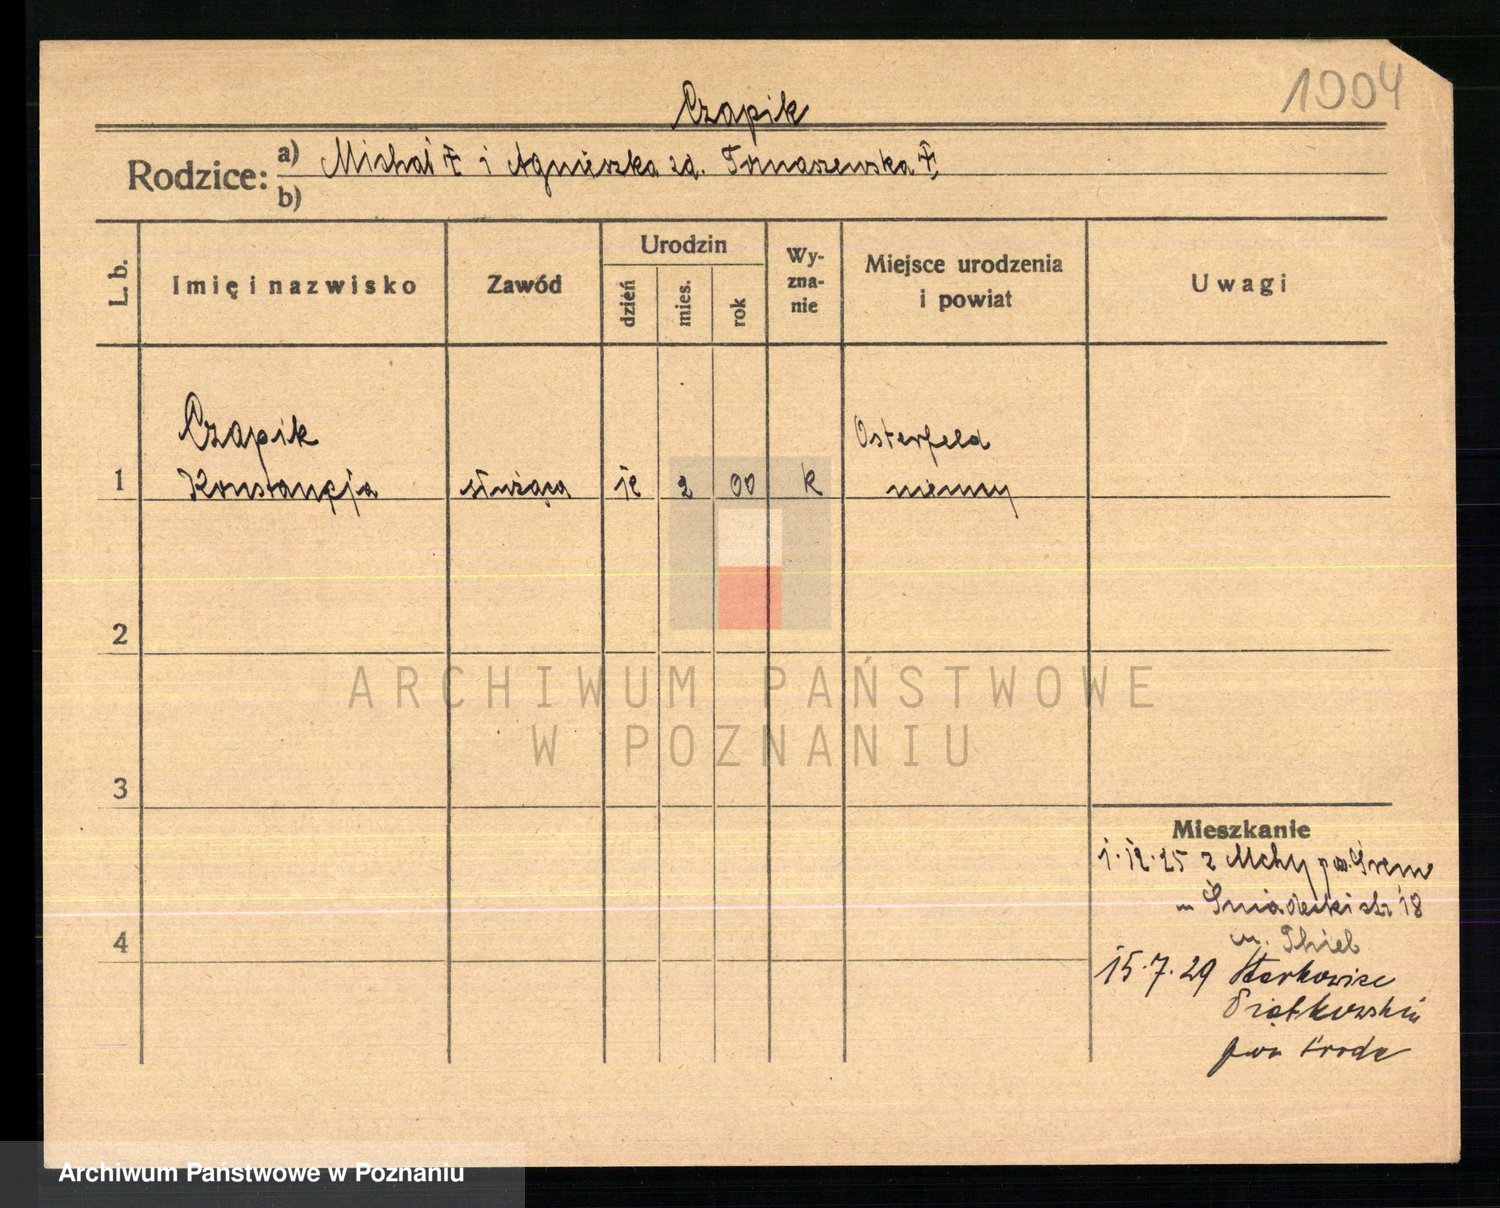 1904
Czapik
Rodzice: a) Michał † i Agnieszka zd. Tomaszewska †,
b)
L. b.
Imię i nazwisko
Zawód
Urodzin
dzień
mies.
rok
Wy-
zna-
nie
Miejsce urodzenia
i powiat
Uwagi
Czapik
Osterfeld
1 Konstancja służąca 12 2 00 k niemcy
2
3
4
ARCHIWUM PAŃSTWOWE
W POZNANIU
Mieszkanie
1.12.25 z Mchy pow. Śrem
Śniadeckich 18
m. Thiel
15.7.29 Starkowiec
Piątkowski
pow Środa
Archiwum Państwowe w Poznaniu